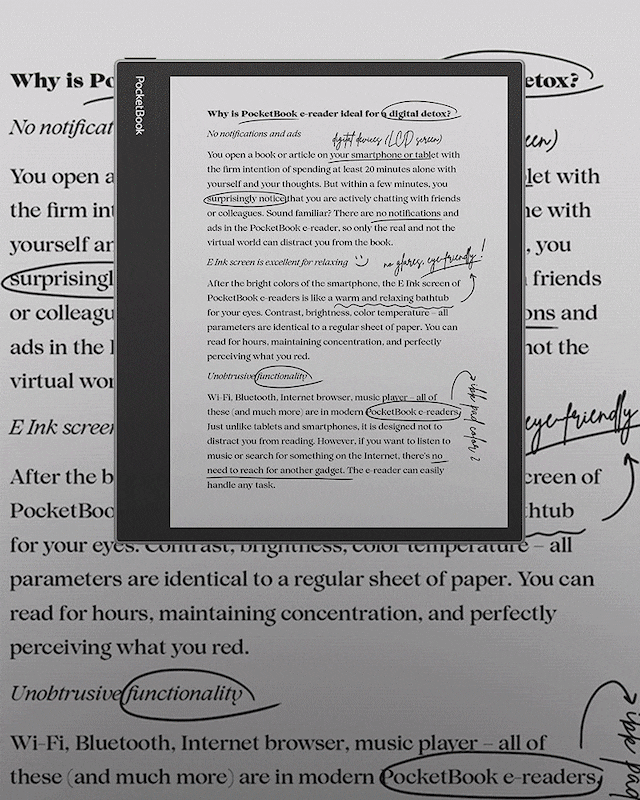 PocketBook
Why is PocketBook e-reader ideal for a digital detox?
No notifications and ads
digital devices (LCD screen)
You open a book or article on your smartphone or tablet with
the firm intention of spending at least 20 minutes alone with
yourself and your thoughts. But within a few minutes, you
surprisingly notice that you are actively chatting with friends
or colleagues. Sound familiar? There are no notifications and
ads in the PocketBook e-reader, so only the real and not the
virtual world can distract you from the book.
E Ink screen is excellent for relaxing
no glares, eye-friendly!
After the bright colors of the smartphone, the E Ink screen of
PocketBook e-readers is like a warm and relaxing bathtub
for your eyes. Contrast, brightness, color temperature – all
parameters are identical to a regular sheet of paper. You can
read for hours, maintaining concentration, and perfectly
perceiving what you red.
Unobtrusive functionality
Wi-Fi, Bluetooth, Internet browser, music player – all of
these (and much more) are in modern PocketBook e-readers.
Just unlike tablets and smartphones, it is designed not to
distract you from reading. However, if you want to listen to
music or search for something on the Internet, there's no
need to reach for another gadget. The e-reader can easily
handle any task.
pad color 2
Why is Po etox?
No notificat een)
You open a let with
the firm int e with
yourself an , you
surprisingl friends
or colleagu ons and
ads in the not the
virtual wor
E Ink screen eye-friendly
After the b creen of
PocketBoo htub
for your eyes. Contrast, brightness, color temperature – all
parameters are identical to a regular sheet of paper. You can
read for hours, maintaining concentration, and perfectly
perceiving what you red.
Unobtrusive functionality
Wi-Fi, Bluetooth, Internet browser, music player – all of
these (and much more) are in modern PocketBook e-readers.
pad